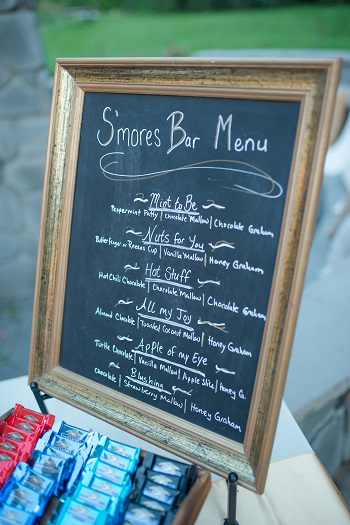 S'mores Bar Menu
Mint to Be
Peppermint Patty | Chocolate Mallow | Chocolate Graham
Nuts for You
Butterfinger or Reeses Cup | Vanilla Mallow | Honey Graham
Hot Stuff
Hot Chili Chocolate | Chocolate Mallow | Chocolate Graham
All my Joy
Almond Chocolate | Toasted Coconut Mallow | Honey Graham
Apple of my Eye
Turtle Chocolate | Vanilla Mallow | Apple Slice | Honey G.
Blushing
Chocolate | Strawberry Mallow | Honey Graham